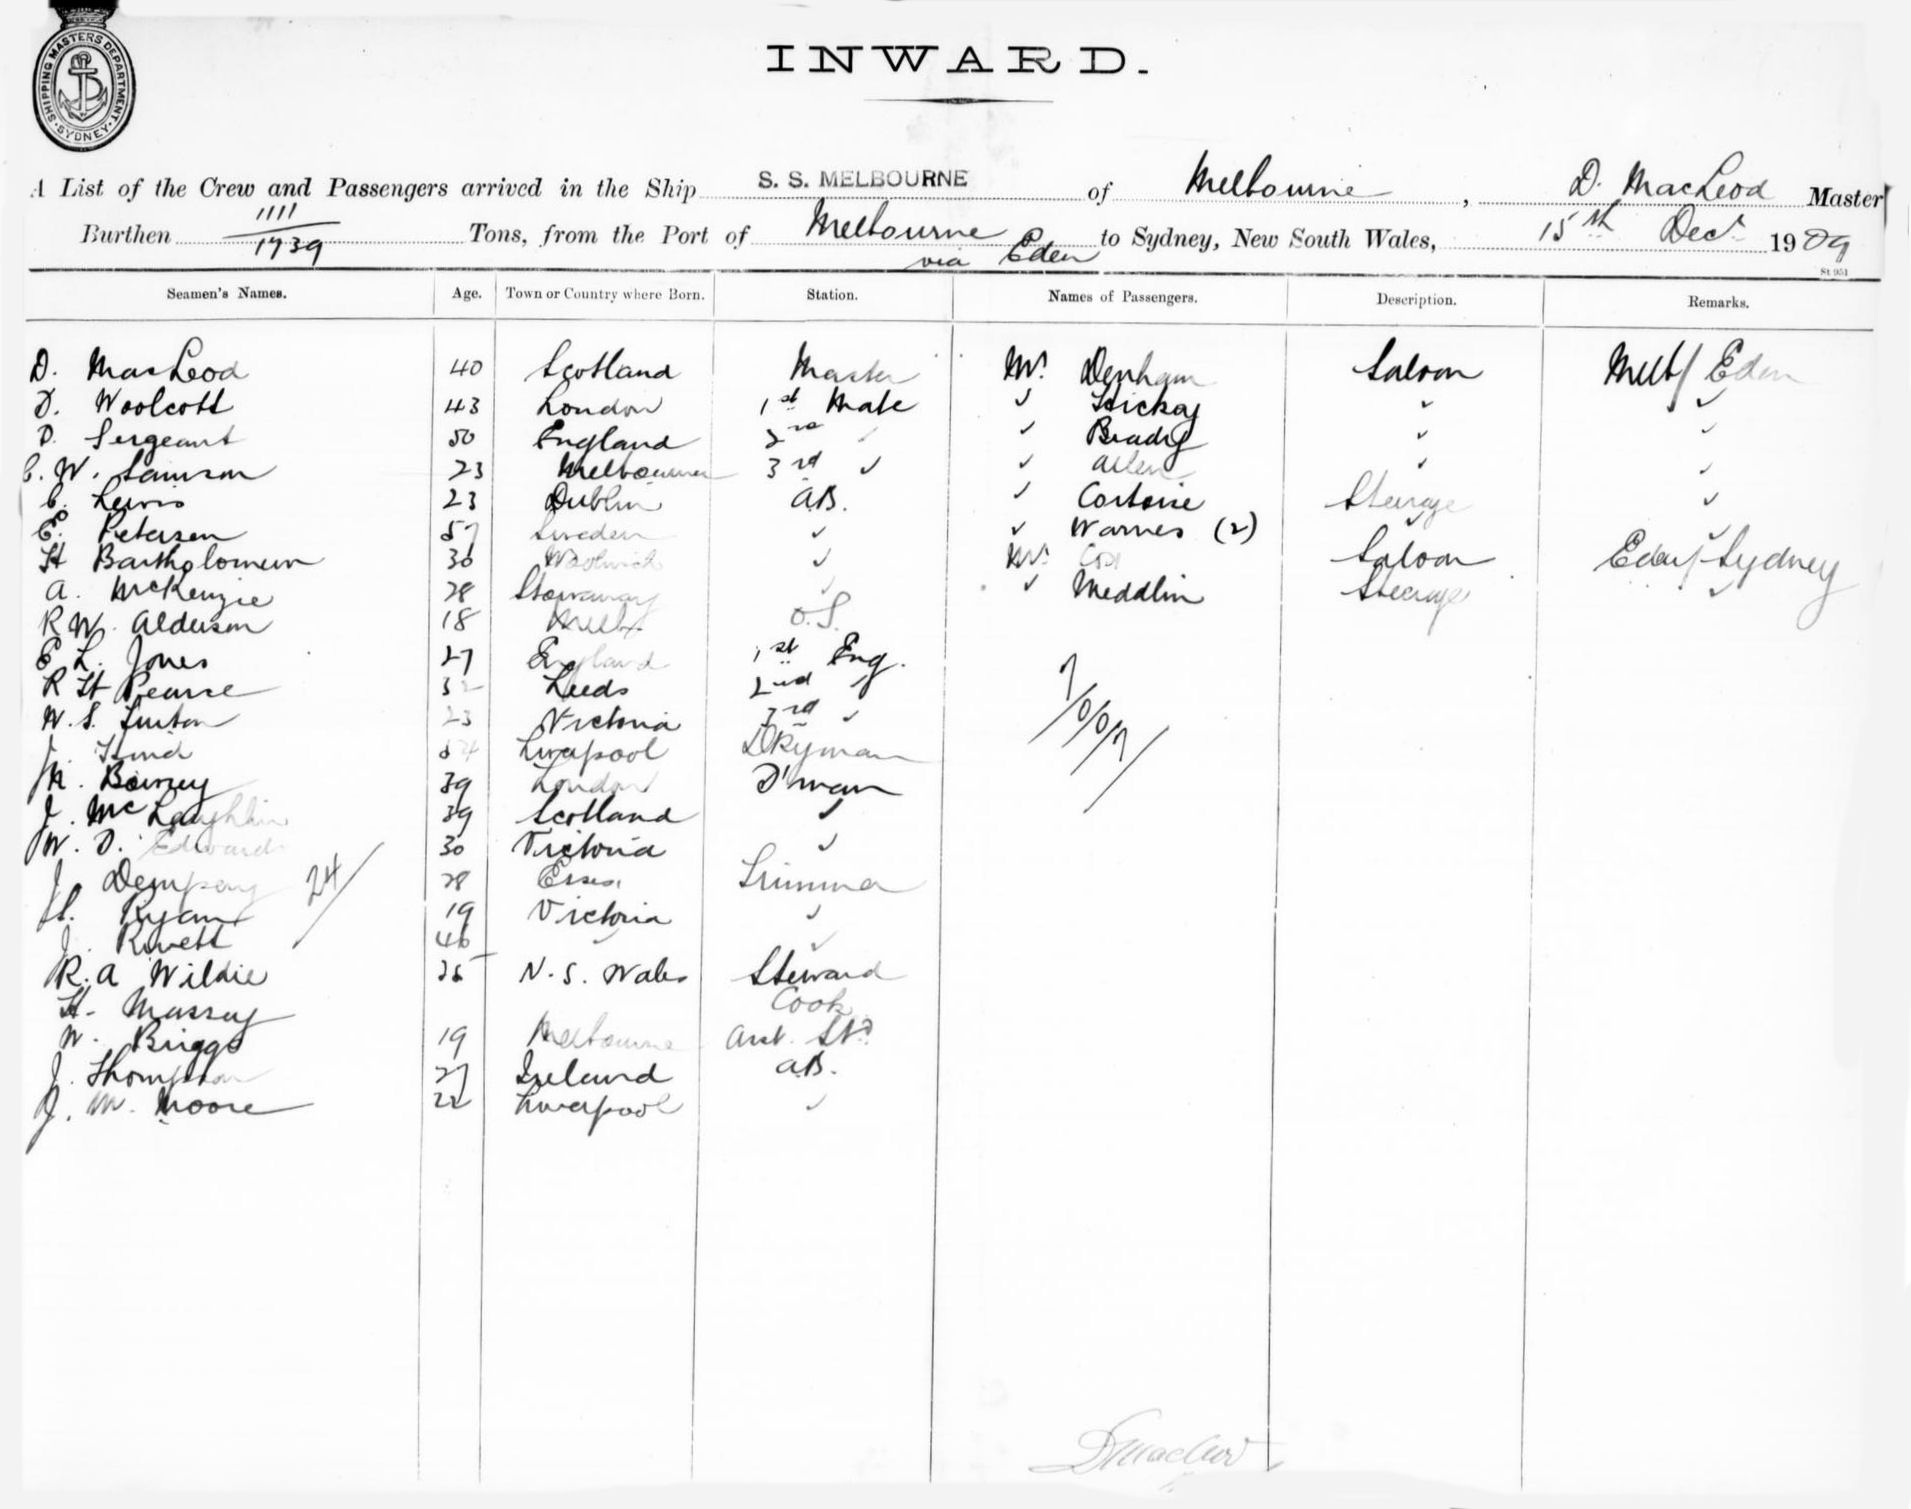 SHIPPING MASTERS DEPARTMENT · SYDNEY ·
INWARD.
A List of the Crew and Passengers arrived in the Ship S. S. MELBOURNE of Melbourne, D. MacLeod Master
Burthen 1111/1739 Tons, from the Port of Melbourne via Eden to Sydney, New South Wales, 15th Dec 1909
St 951
Seamen's Names. Age. Town or Country where Born. Station. Names of Passengers. Description. Remarks.
D. MacLeod 40 Scotland Master Mr. Denham Saloon Melb/ Eden
D. Woolcott 43 London 1st Mate " Hickey " "
D. Sergeant 50 England 2nd " " Brady " "
C. W. Samson 23 Melbourne 3rd " " Allen " "
C. Lewis 23 Dublin A.B. " Steerage "
E. Petersen 57 Sweden " " Warnes (2) " "
H Bartholomew 30 Woolwich " Mr. Cox Saloon Eden/Sydney
A. McKenzie 28 Stornaway " " Meddlin Steerage "
R W. Alderson 18 Melb O.S.
E L. Jones 27 England 1st Eng.
R H Pearse 32 Leeds 2nd "
W. S. 23 Victoria 3rd "
J. Hind 54 Liverpool Dkyman
39 London F'man
J. McLaughlin 39 Scotland "
W. D. Edwards 30 Victoria "
J. Dempsey 28 Essex Trimmer
24
Ryan 19 Victoria "
J. Rivett 46 " "
R. A Wildie 25 N. S. Wales Steward
H. Massey Cook
W. Briggs 19 Melbourne Asst. Std
J. Thompson 27 Ireland A.B.
J. M. Moore 22 Liverpool "
7/0/0/7/
D MacLeod